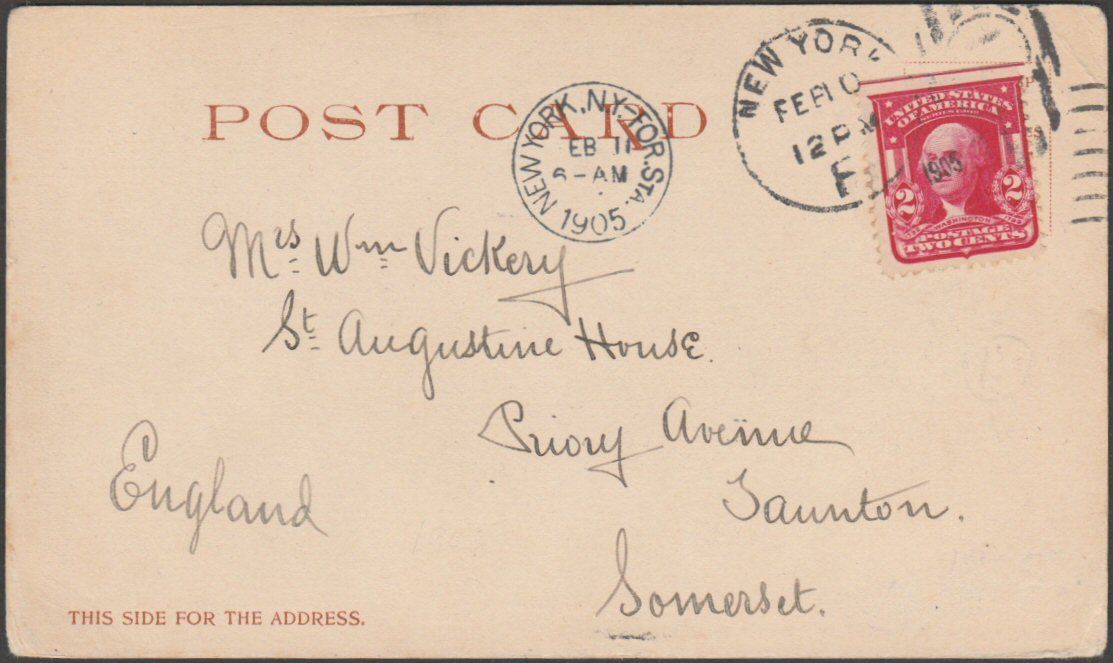 POST CARD
NEW YORK, N.Y. FOR. STA.
EB 11
6-AM
1905
NEW YORK
FEB 10
12 PM
F
1905
UNITED STATES
OF AMERICA
SERIES 1902
2 2
WASHINGTON
POSTAGE
TWO CENTS
Mrs. Wm Vickery
St. Augustine House.
Priory Avenue
Taunton.
England
Somerset.
THIS SIDE FOR THE ADDRESS.